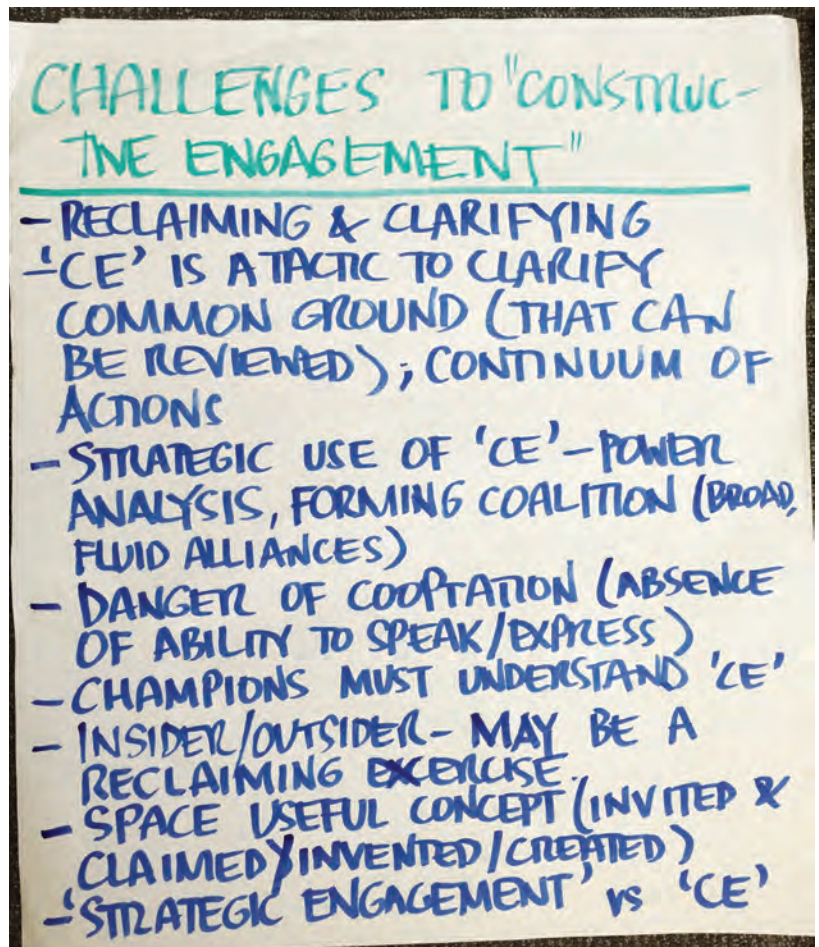 CHALLENGES TO "CONSTRUC-
TIVE ENGAGEMENT"
- RECLAIMING & CLARIFYING
- 'CE' IS A TACTIC TO CLARIFY
COMMON GROUND (THAT CAN
BE REVIEWED); CONTINUUM OF
ACTIONS
- STRATEGIC USE OF 'CE' - POWER
ANALYSIS, FORMING COALITION (BROAD,
FLUID ALLIANCES)
- DANGER OF COOPTATION (ABSENCE
OF ABILITY TO SPEAK/EXPRESS)
- CHAMPIONS MUST UNDERSTAND 'CE'
- INSIDER/OUTSIDER - MAY BE A
RECLAIMING EXCERCISE.
- SPACE USEFUL CONCEPT (INVITED &
CLAIMED/INVENTED/CREATED)
- 'STRATEGIC ENGAGEMENT' vs 'CE'